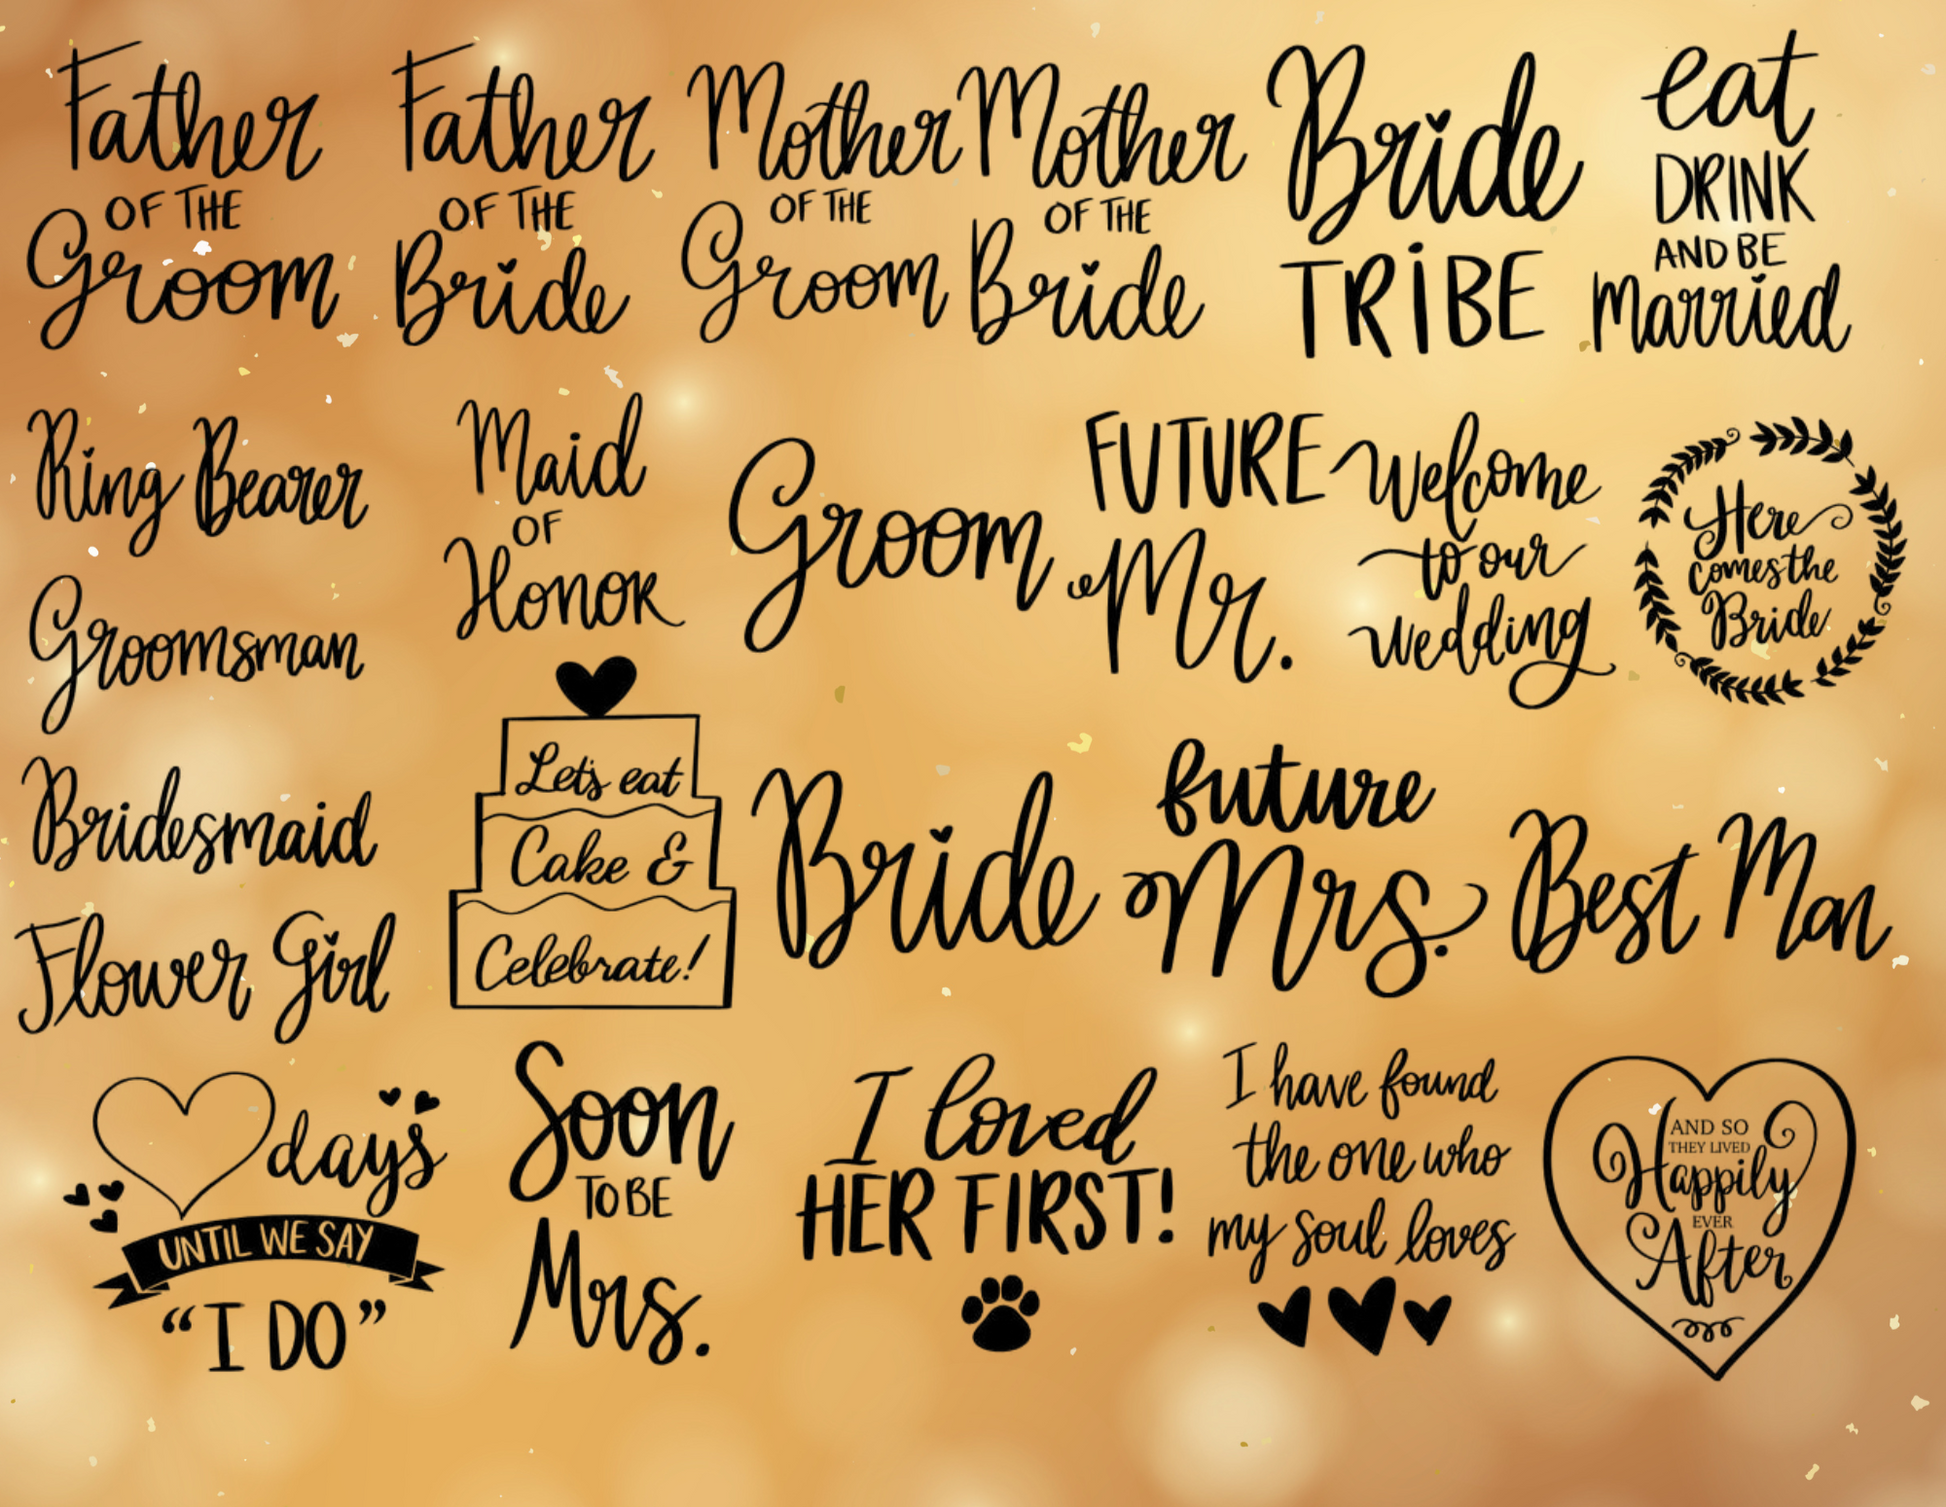 Father
OF THE
Groom
Father
OF THE
Bride
Mother
OF THE
Groom
Mother
OF THE
Bride
Bride
TRIBE
eat
DRINK
AND BE
Married
Ring Bearer
Groomsman
Bridesmaid
Flower Girl
Maid
OF
Honor
Groom
FUTURE
Mr.
Welcome
to our
wedding
Here
comes the
Bride
Let's eat
Cake &
Celebrate!
Bride
future
Mrs.
Best Man
days
UNTIL WE SAY
“I DO”
Soon
TO BE
Mrs.
I loved
HER FIRST!
I have found
the one who
my soul loves
AND SO
THEY LIVED
Happily
EVER
After